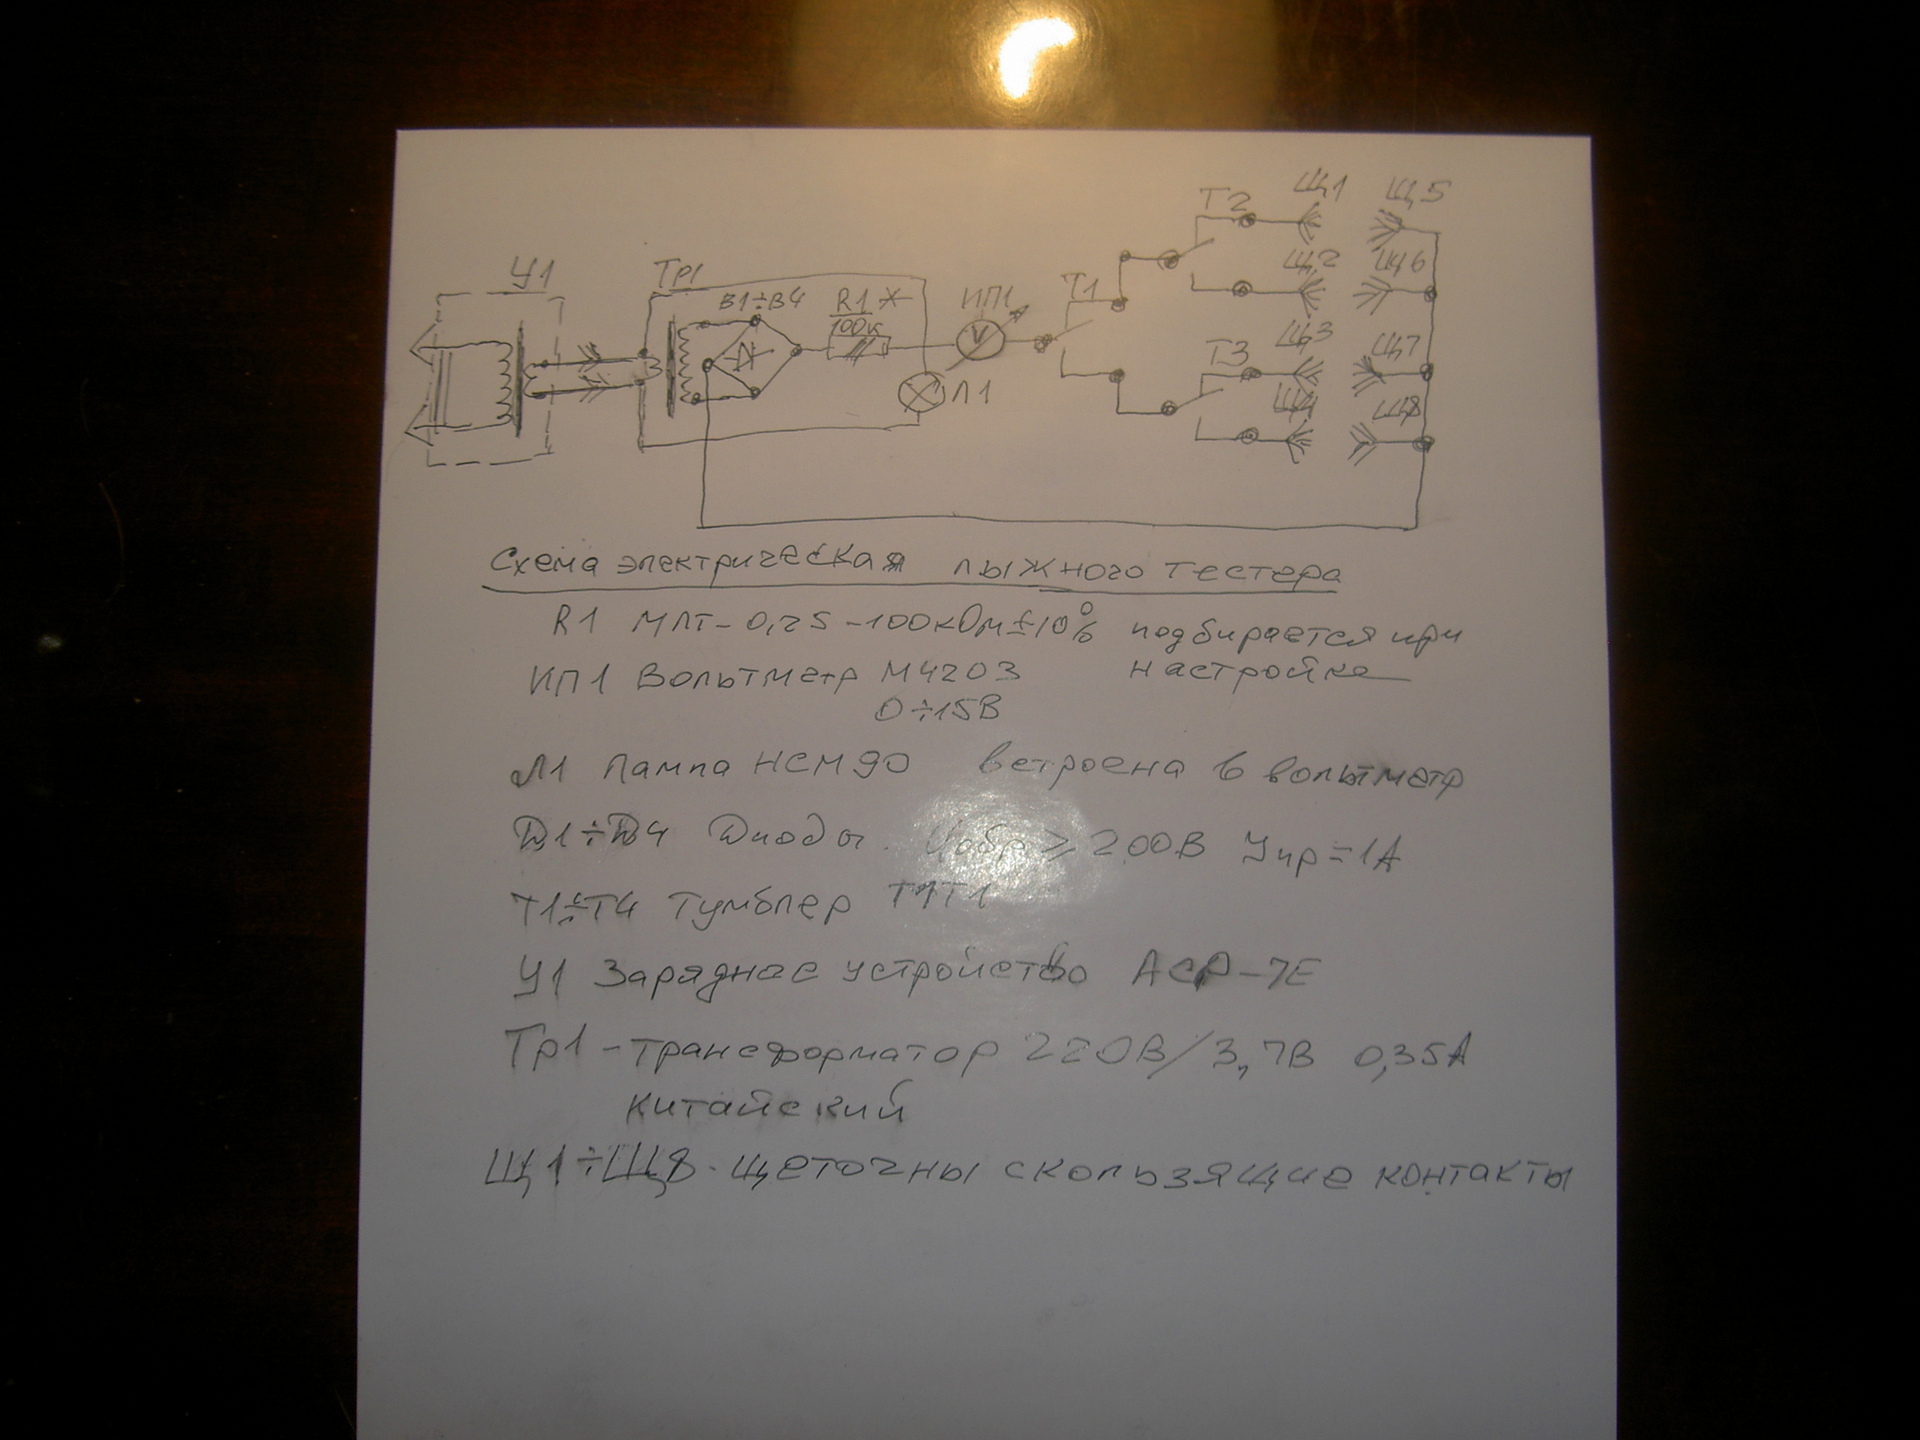 У1
Тр1
В1÷В4
R1*
100к
ИП1
V
Л1
Т1
Т2
Т3
Щ1
Щ2
Щ3
Щ4
Щ5
Щ6
Щ7
Щ8
Схема электрическая лыжного тестера
R1 МЛТ-0,25-100кОм±10% подбирается при
настройке
ИП1 Вольтметр М4203
0÷15В
Л1 Лампа НСМ90 встроена в вольтметр
Д1÷Д4 Диоды. Uобр ≥ 200В Jпр=1А
Т1÷Т4 Тумблер
У1 Зарядное устройство АСР-7Е
Тр1 - трансформатор 220В/3,7В 0,35А
Китайский
Щ1÷Щ8 - щеточны скользящие контакты